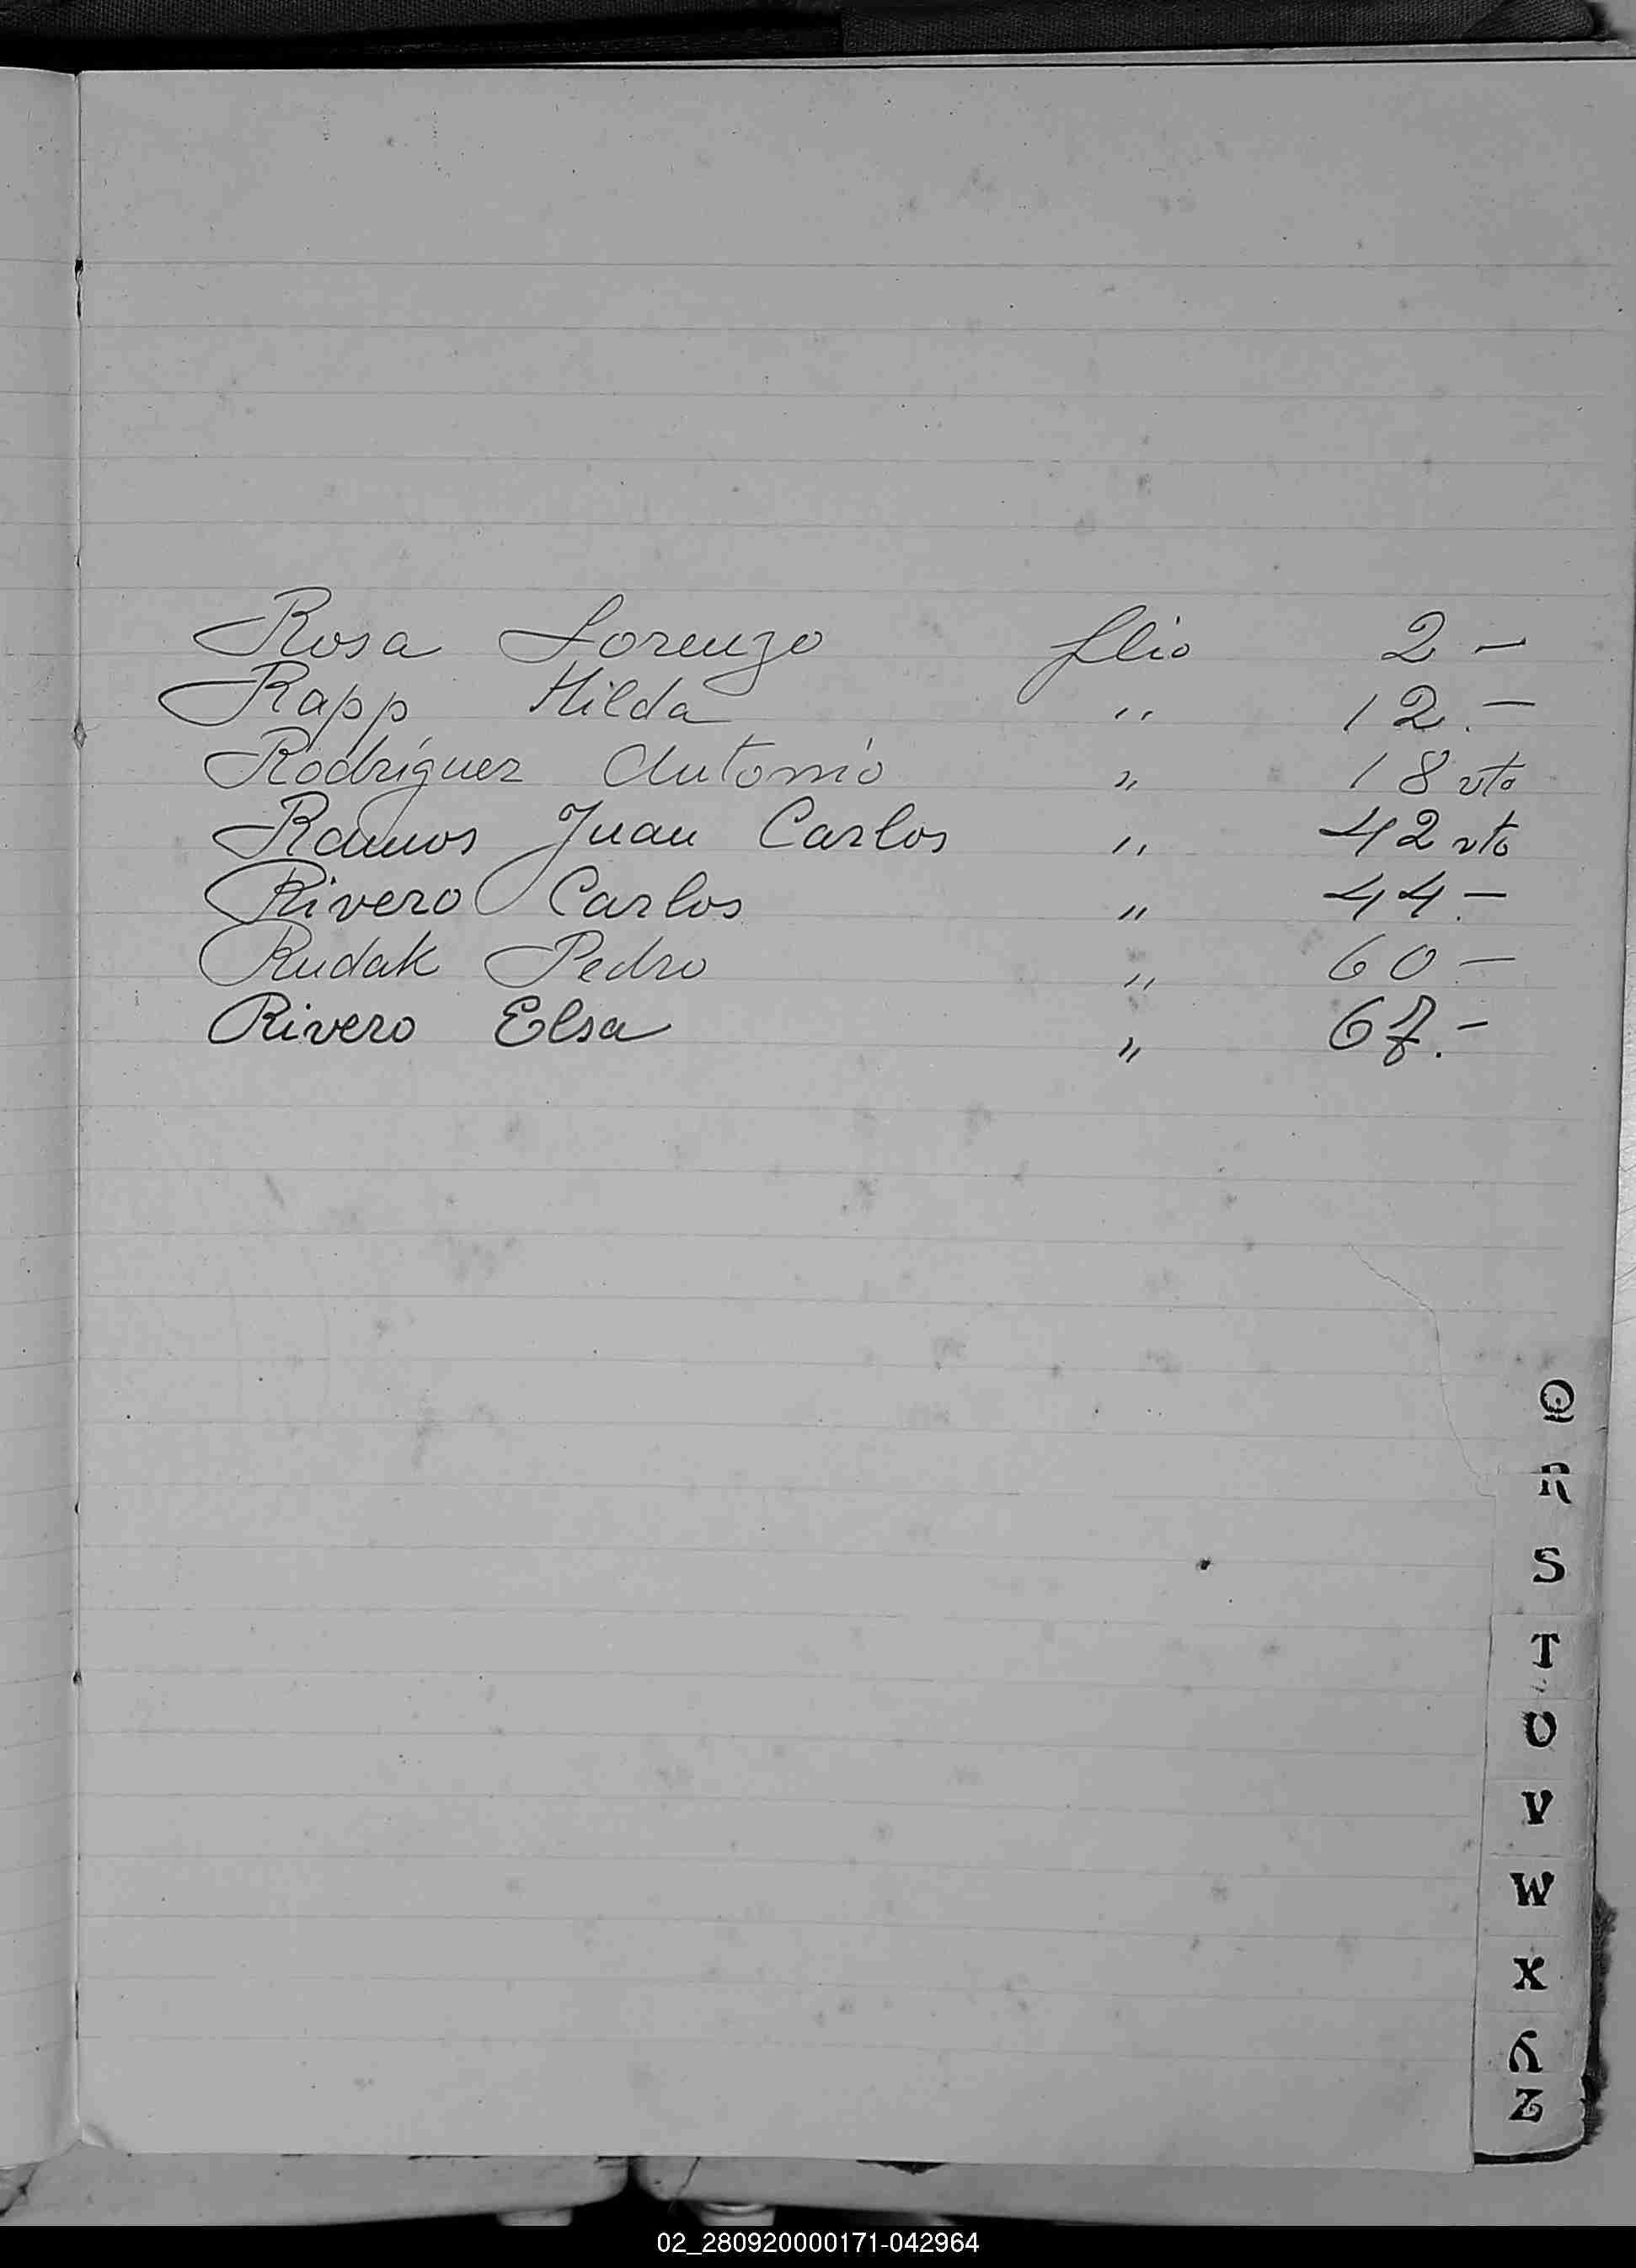 Rosa Lorenzo flio 2 —
Rapp Hilda " 12.—
Rodríguez Antonio " 18 vto
Ramos Juan Carlos " 42 vto
Rivero Carlos " 44.—
Rudak Pedro " 60 —
Rivero Elsa " 67.—
Q
R
S
T
U
V
W
X
Y
Z
02_280920000171-042964